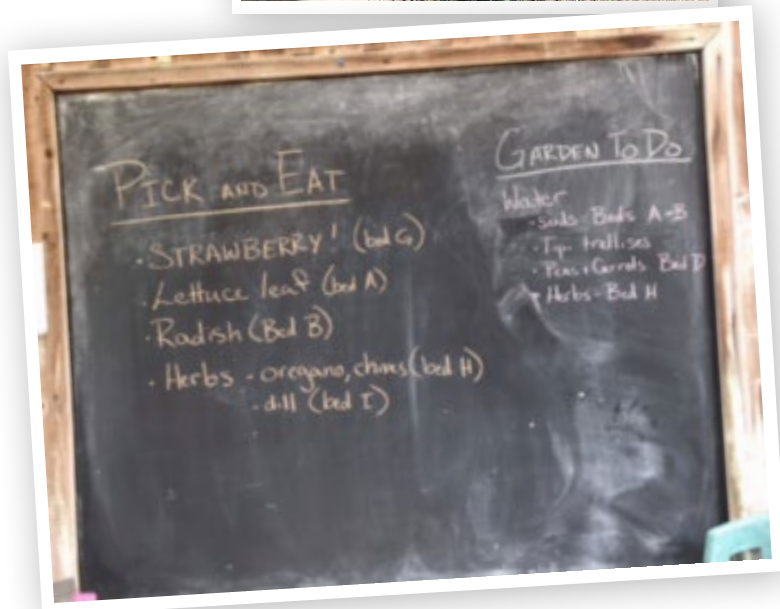 PICK AND EAT
· STRAWBERRY! (bed G)
· Lettuce leaf (bed A)
· Radish (Bed B)
· Herbs - oregano, chives (bed H)
- dill (bed I)
GARDEN TO DO
Water
Beds A-B
trellises
· Peas + Carrots Bed D
Herbs - Bed H